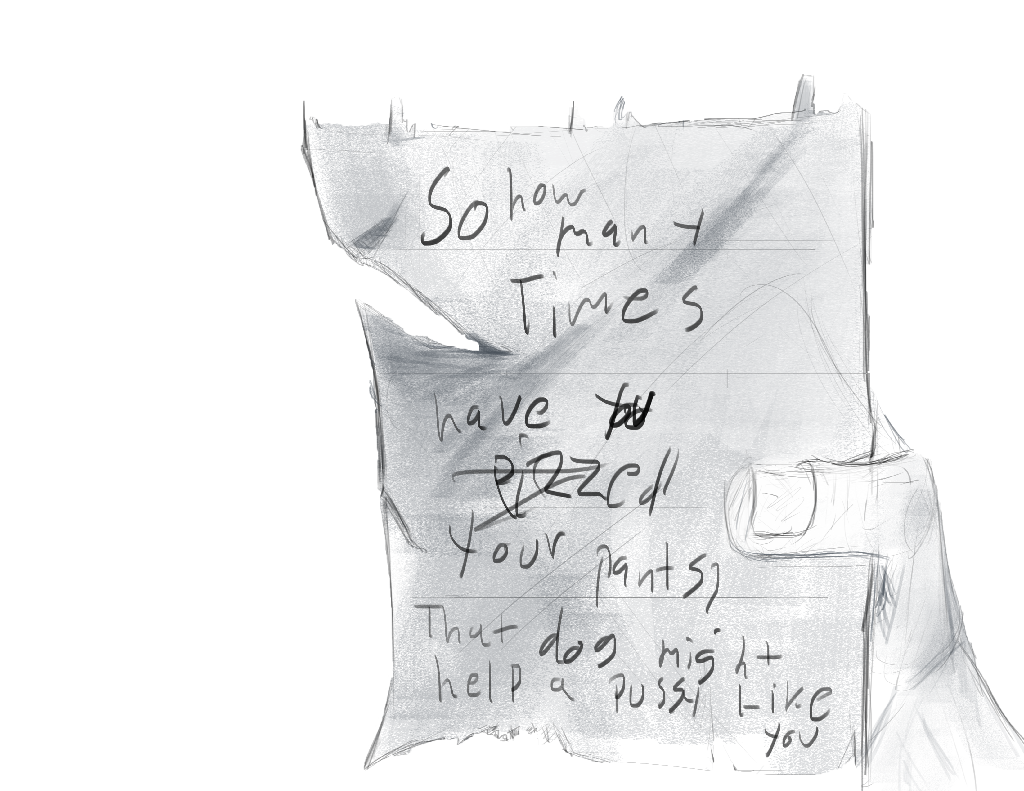 So how
many
Times
have you
pizzed
your pants?
That dog might
help a pussy Like
you